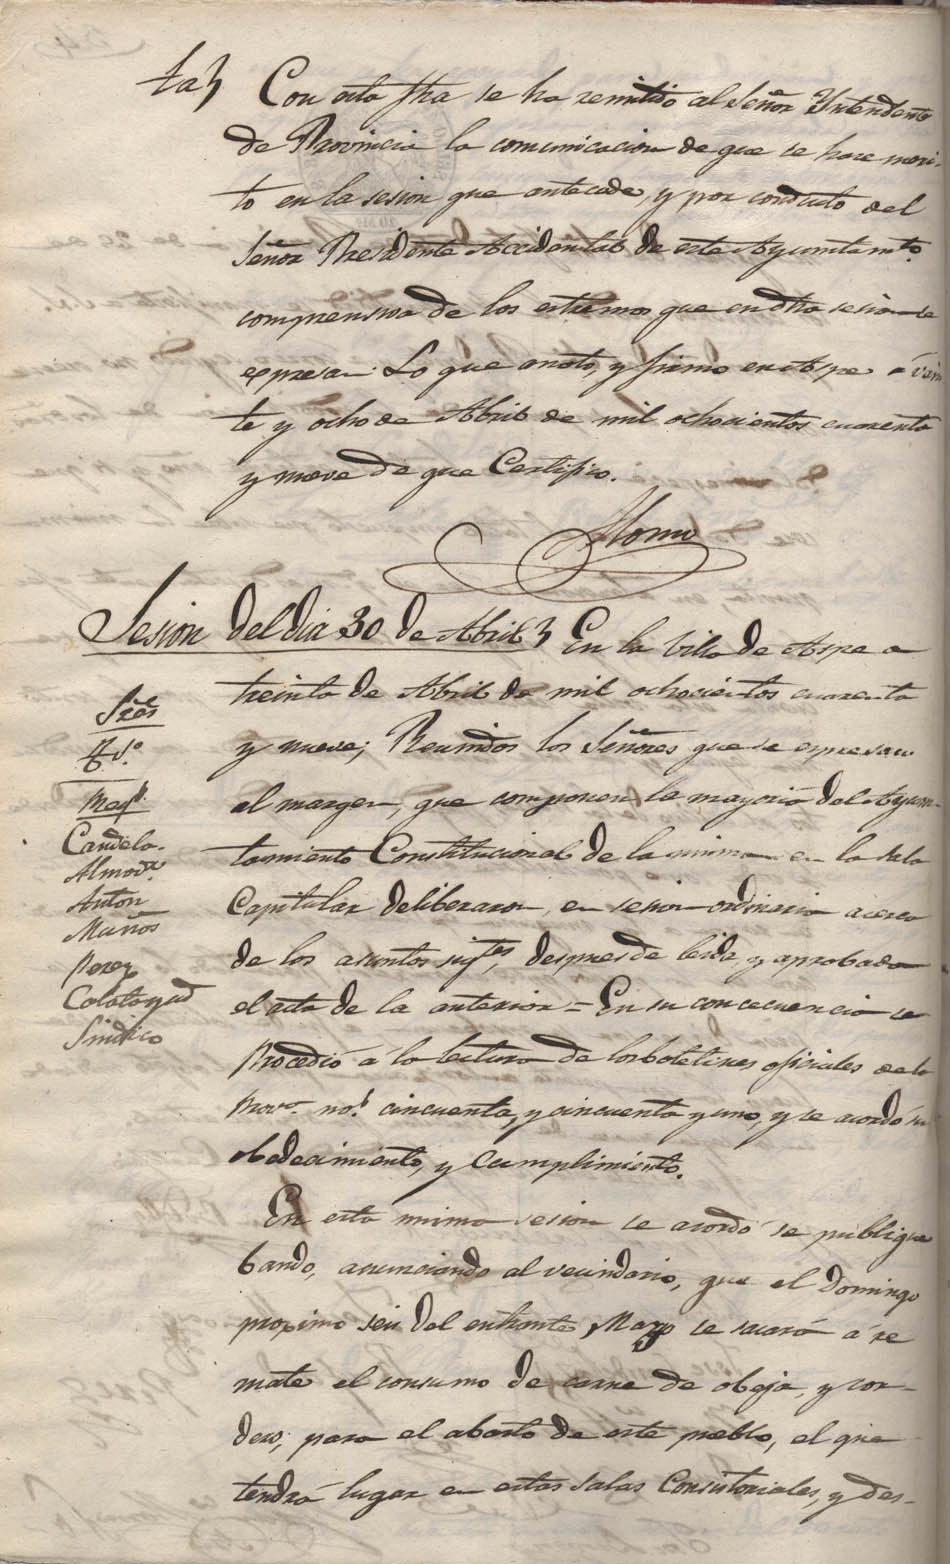 ta} Con esta fha se ha remitido al Señor Yntendente
de Provincia la comunicacion de que se hace meri-
to en la sesion que antecede, y por conducto del
Señor Presidente Accidental de este Ayuntamto.
comprensiva de los estremos que en dha sesion se
espresa. Lo que anoto, y firmo en Aspe á vein
te y ocho de Abril de mil ochocientos cuarenta
y nueve de que Certifico.
Sesion del dia 30 de Abril} En la Villa de Aspe a
treinta de Abril de mil ochocientos cuarenta
y nueve; Reunidos los Señores que se espresan
al margen, que componen la mayoria del Ayun-
tamiento Constitucional de la misma en la sala
Capitular deliberaron, en sesion ordinaria acerca
de los asuntos sigtes, despues de leida y aprobada
el acta de la anterior = En su concecuencia se
Procedió á la lectura de los boletines oficiales de la
Prova. nos. cincuenta, y cincuenta y uno, y se acordó su
obedecimiento, y Cumplimiento.
En esta misma sesion se acordó se publique
bando, anunciando al vecindario, que el Domingo
proximo seis del entrante Mayo se sacará á re
mate el consumo de carne de obeja, y cor-
dero, para el abasto de este pueblo, el que
tendrá lugar en estas salas Consistoriales, y des-
Sres
Pte.
Candela.
Almoda.
Anton
Muños
Perez
Calatayud
Sindico